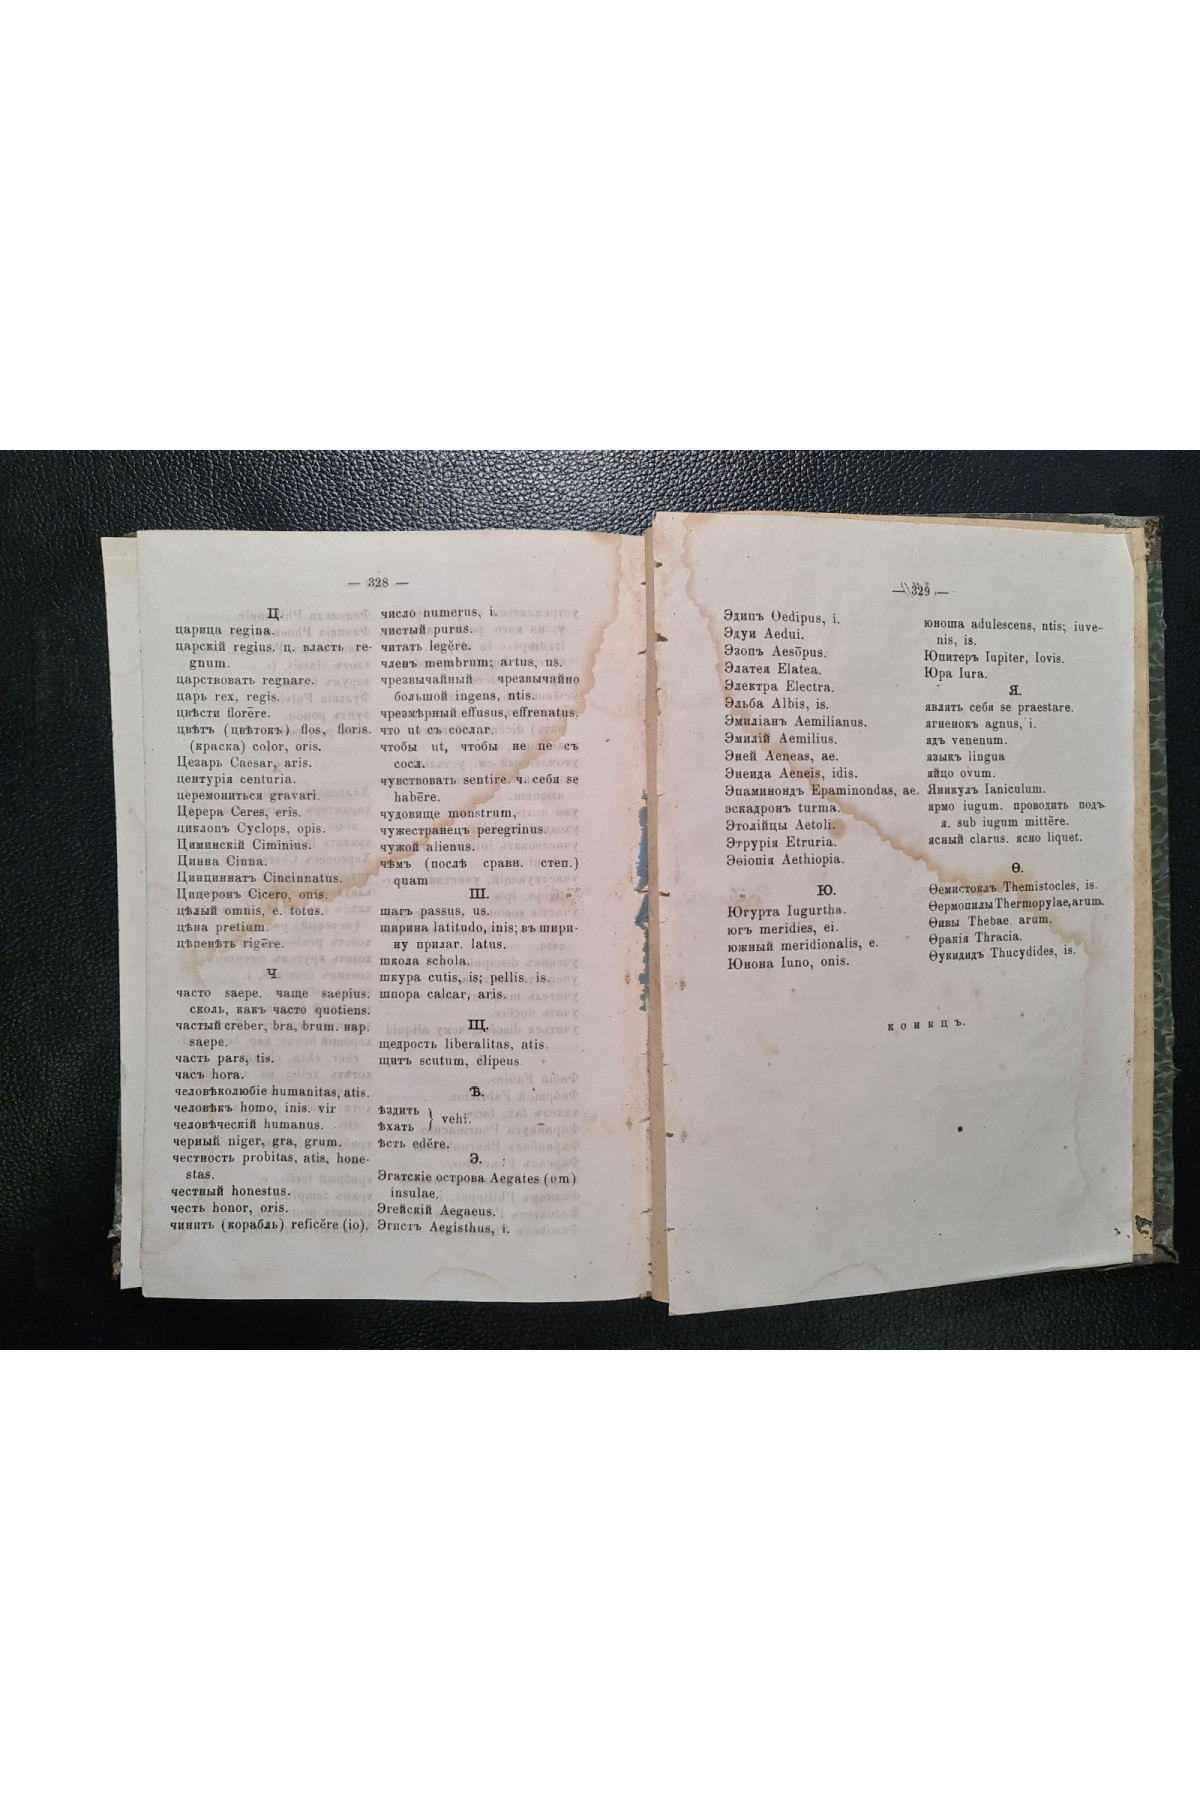 — 328 —
Ц.
царица regina.
царскій regius. ц. власть re-
gnum.
царствовать regnare.
царь rex, regis.
цвѣсти florēre.
цвѣтъ (цвѣтокъ) flos, floris.
(краска) color, oris.
Цезарь Caesar, aris.
центурія centuria.
церемониться gravari.
Церера Ceres, eris.
циклопъ Cyclops, opis.
Циминскій Ciminius.
Цинна Cinna.
Цинциннатъ Cincinnatus.
Цицеронъ Cicero, onis.
цѣлый omnis, e. totus.
цѣна pretium.
цѣпенѣть rigēre.
Ч.
часто saepe. чаще saepius.
сколь, какъ часто quotiens.
частый creber, bra, brum. нар.
saepe.
часть pars, tis.
часъ hora.
человѣколюбіе humanitas, atis.
человѣкъ homo, inis. vir
человѣческій humanus.
черный niger, gra, grum.
честность probitas, atis, hone-
stas.
честный honestus.
честь honor, oris.
чинить (корабль) reficĕre (io).
число numerus, i.
чистый purus.
читать legĕre.
членъ membrum; artus, us.
чрезвычайный чрезвычайно
большой ingens, ntis.
чрезмѣрный effusus, effrenatus.
что ut съ сослаг.
чтобы ut, чтобы не ne съ
сосл.
чувствовать sentire. ч. себя se
habēre.
чудовище monstrum,
чужестранецъ peregrinus.
чужой alienus.
чѣмъ (послѣ сравн. степ.)
quam
Ш.
шагъ passus, us.
ширина latitudo, inis; въ шири-
ну прилаг. latus.
школа schola.
шкура cutis, is; pellis. is.
шпора calcar, aris.
Щ.
щедрость liberalitas, atis.
щитъ scutum, clipeus.
Ѣ.
ѣздить
ѣхать } vehi.
ѣсть edĕre.
Э.
Эгатскіе острова Aegates (um)
insulae.
Эгейскій Aegaeus.
Эгистъ Aegisthus, i.
— 329 —
Эдипъ Oedipus, i.
Эдуи Aedui.
Эзопъ Aesōpus.
Элатея Elatea.
Электра Electra.
Эльба Albis, is.
Эмиліанъ Aemilianus.
Эмилій Aemilius.
Эней Aeneas, ae.
Энеида Aeneis, idis.
Эпаминондъ Epaminondas, ae.
эскадронъ turma.
Этолійцы Aetoli.
Этрурія Etruria.
Эѳіопія Aethiopia.
Ю.
Югурта Iugurtha.
югъ meridies, ei.
южный meridionalis, e.
Юнона Iuno, onis.
юноша adulescens, ntis; iuve-
nis, is.
Юпитеръ Iupiter, Iovis.
Юра Iura.
Я.
являть себя se praestare.
ягненокъ agnus, i.
ядъ venenum.
языкъ lingua
яйцо ovum.
Яникулъ Ianiculum.
ярмо iugum. проводить подъ
я. sub iugum mittĕre.
ясный clarus. ясно liquet.
Ѳ.
Ѳемистоклъ Themistocles, is.
Ѳермопилы Thermopylae, arum.
Ѳивы Thebae. arum.
Ѳракія Thracia.
Ѳукидидъ Thucydides, is.
конецъ.